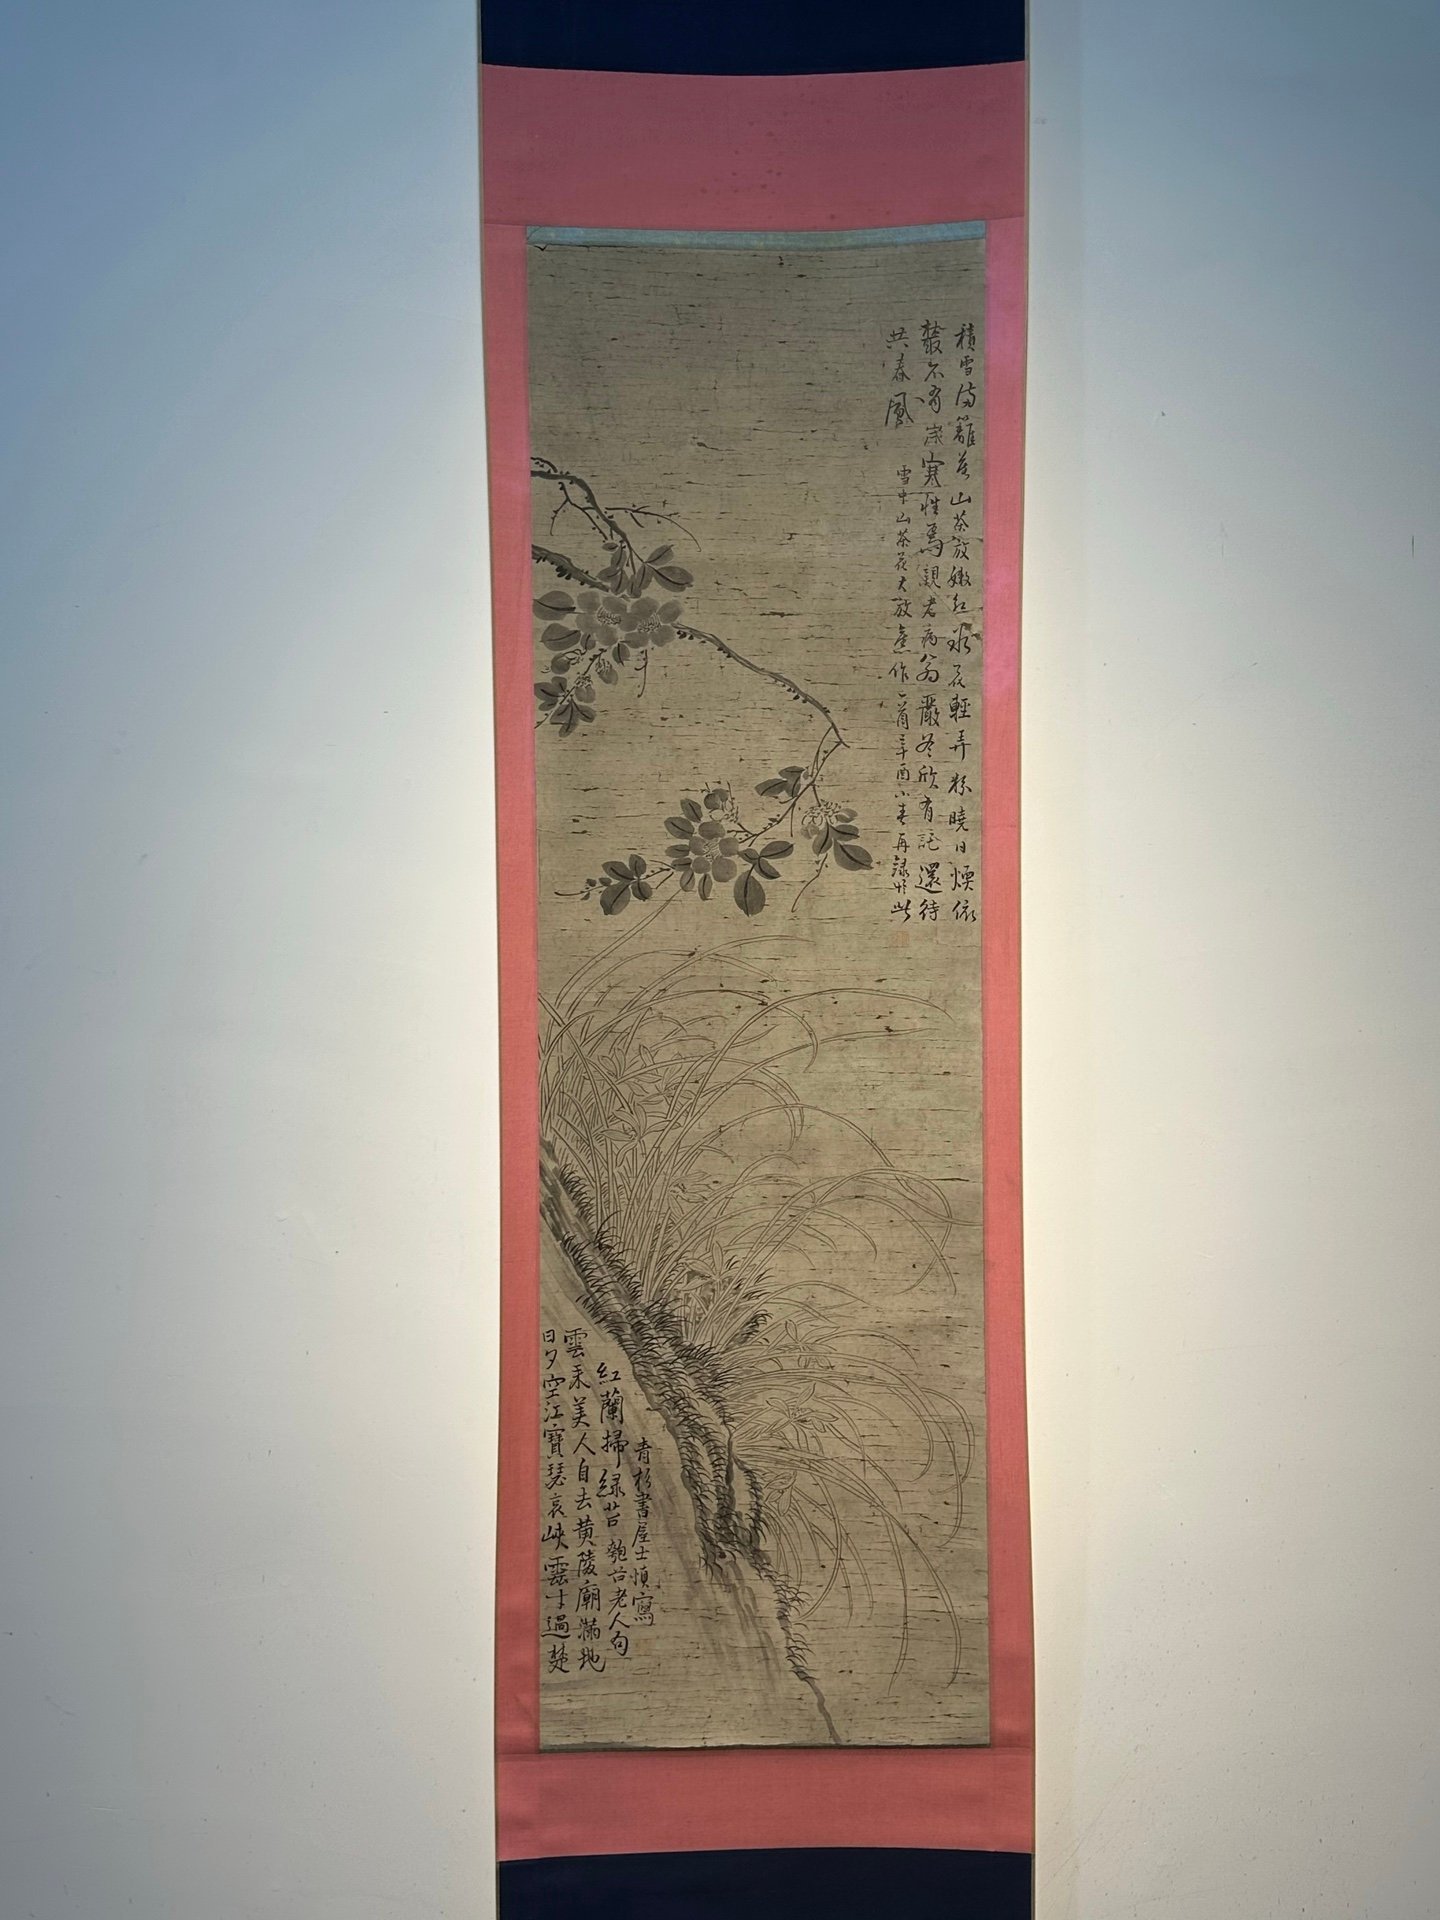 積雪滿籬基山茶放嫩紅冰花輕弄粉曉日煗依
叢不有寒性焉親老病翁嚴冬欣有託還待
共春風
雪中山茶花大放意作一首辛酉小春再錄於此
青杉書屋士慎寫
紅蘭掃綠苔 匏谷老人句
雲來美人自去黃陵廟滿地
日夕空江寶瑟哀峽雲才過楚